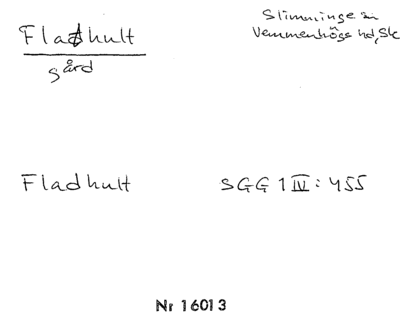 Fladhult
gård
Slimminge sn
Vemmenhögs hd, Sk
Fladhult
SGG 1 IV: 455
Nr 16013